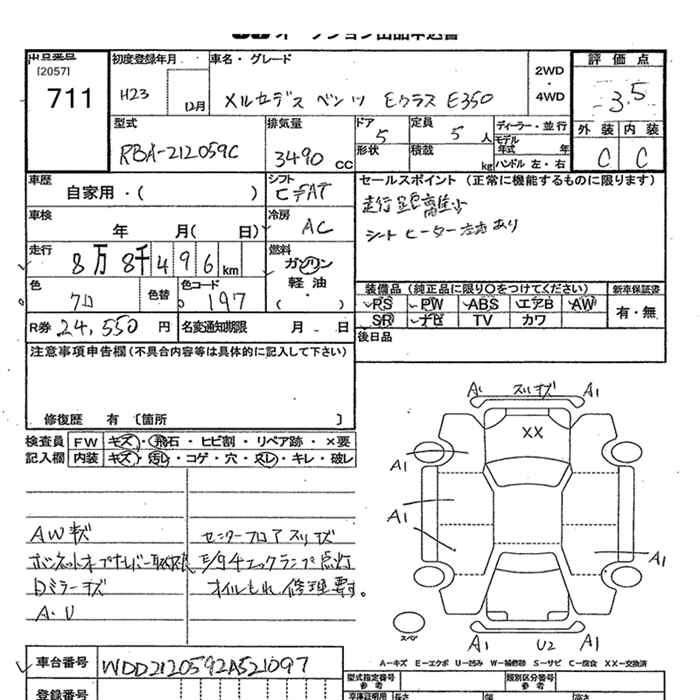 オークション出品申込書
出品番号
[2057]
711
初度登録年月
H23
12月
車名・グレード
メルセデス ベンツ Eクラス E350
2WD
・
4WD
評価点
3.5
型式
RBA-212059C
排気量
3490 CC
ドア
5
定員
5 人
形状
積載
kg
ディーラー・並行
モデル年式 年
ハンドル 左・右
外装
内装
C
C
車歴
自家用・( )
シフト
車検
年 月( 日)
冷房
AC
走行
8万 8千 4 9 6 km
燃料
ガソリン
軽油
( )
色
クロ
色替
色コード
197
R券 24,550 円
名変通知期限 月 日
セールスポイント (正常に機能するものに限ります)
シートヒーター 左右 あり
装備品 (純正品に限り○をつけてください)
新車保証書
PS PW ABS エアB AW
SR ナビ TV カワ
有・無
後日品
注意事項申告欄(不具合内容等は具体的に記入して下さい)
修復歴 有 〔箇所 〕
検査員 FW キズ・飛石・ヒビ割・リペア跡・×要
記入欄 内装 キズ・汚れ・コゲ・穴・スレ・キレ・破レ
AWキズ
センターフロアスリキズ
エンジンチェックランプ点灯
Dミラーキズ
オイルもれ 修理要す。
A・U
A1 スリキズ A1
XX
A1
A1
A1
A1 U2 A1
スペア
A-キズ E-エクボ U-凹み W-補修跡 S-サビ C-腐食 XX-交換済
車台番号
WDD2120592A521097
型式指定番号
参考
類別区分番号
参考
登録番号
車庫証明用
参考
長さ
幅
高さ